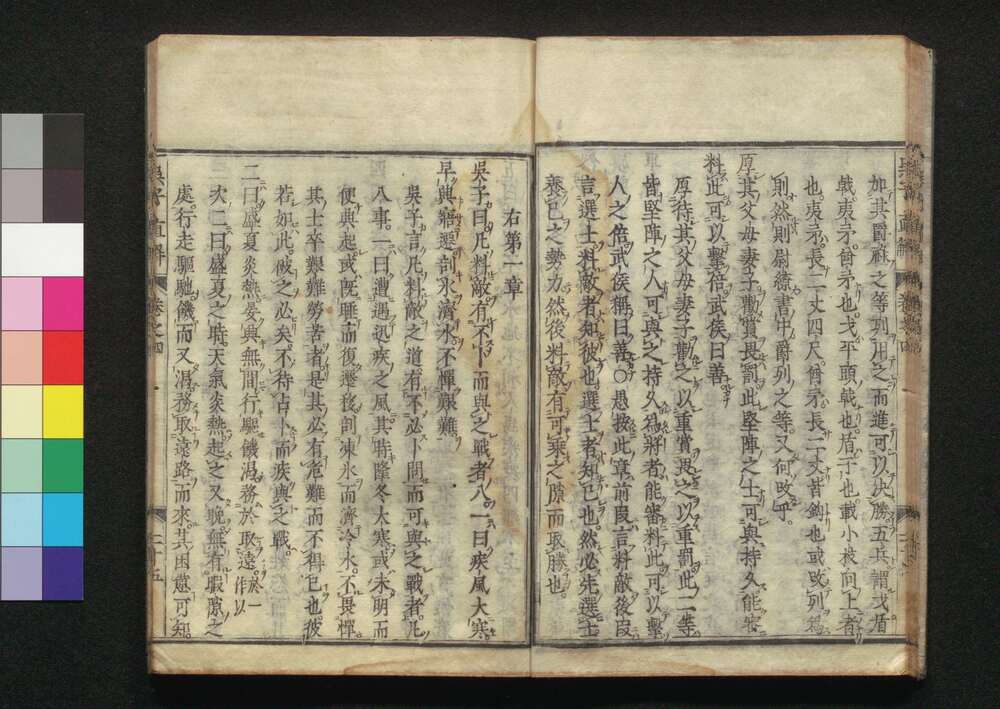 加其爵祿之等列用之而進可以決勝五兵謂戈盾
戟夷矛酋矛也戈平頭戟也盾干也戟小枝向上者
也夷矛長二丈四尺酋矛長二丈皆鉤也或改列為
則然則尉繚書中爵列之等又何改乎
厚其父母妻子勸賞畏罰此堅陣之士可與持久能審
料此可以擊倍武侯曰善
厚待其父母妻子勸之以重賞畏之以重罰此一等
皆堅陣之人可與之持久為將者能審料此可以擊
人之倍武侯稱曰善○愚按此章前段言料敵後段
言選士料敵者知彼也選士者知已也然必先選士
養已之勢力然後料敵有可乘之隙而取勝也
右第一章
吳子曰凡料敵有不卜而與之戰者八一曰疾風大寒
早興寤遷剖氷濟水不憚艱難
吳子言凡料敵之道有不必卜問而可與之戰者凡
八事一曰遭遇迅疾之風其時隆冬大寒或未明而
便興起或既睡而復遷移剖凍氷而濟冷水不畏憚
其士卒艱難勞苦者是其必有危難而不得已也彼
若如此做之必矣不待占卜而疾與之戰
二曰盛夏炎熱晏興無間行驅饑渴務於取遠於一作以
次二曰盛夏之時天氣炎熱起之又晚無有暇隙之
處行走驅馳饑而又渴務取遠路而來其困憊可知
吳子直解
卷之四
二十五